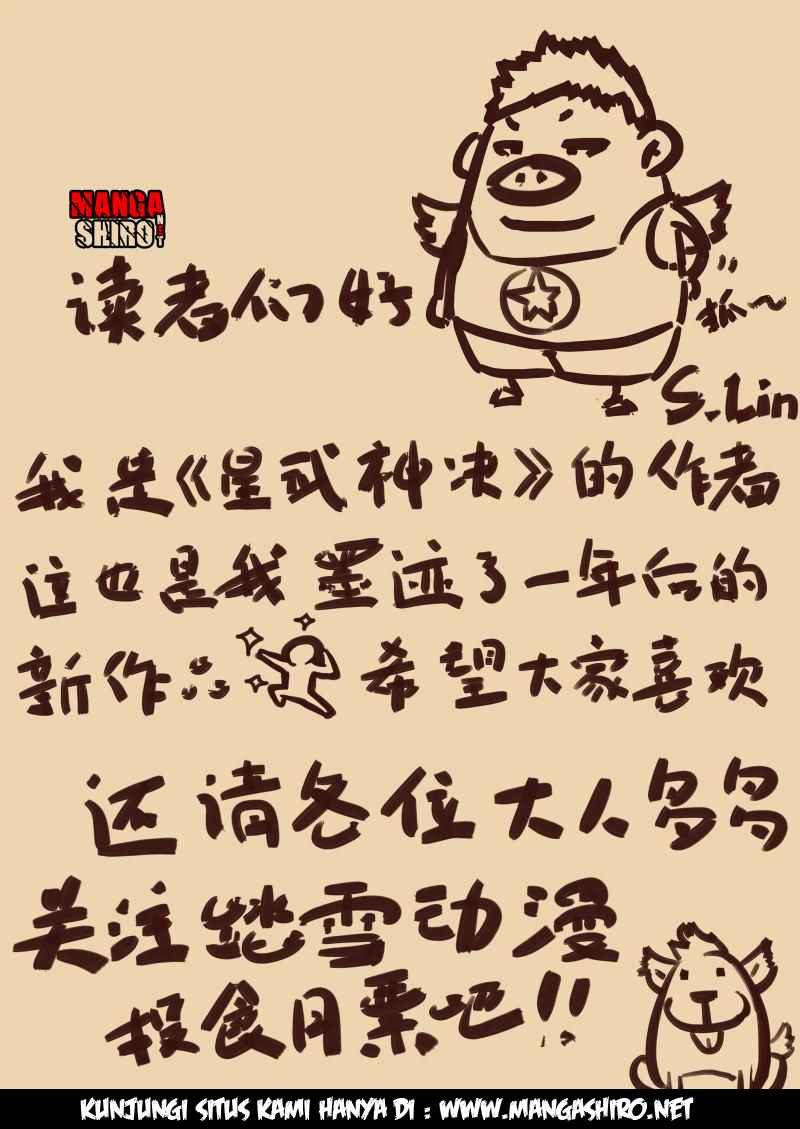 MANGA
SHIRO NET
读者们好
抓~
S.Lin
我是《星武神决》的作者
这也是我墨迹了一年后的
新作 希望大家喜欢
还请各位大人多多
关注踏雪动漫
投食月票吧!!
KUNJUNGI SITUS KAMI HANYA DI : WWW.MANGASHIRO.NET